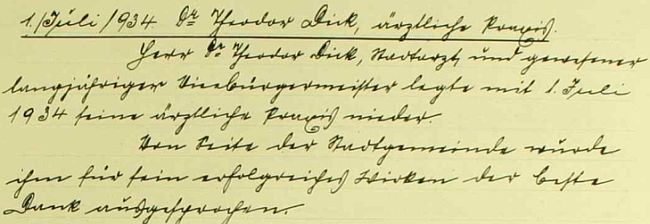 1./Juli/1934. Dr Theodor Dick, ärztliche Praxis.
Herr Dr Theodor Dick, Stadtarzt und gewesener
langjähriger Vizebürgermeister legte mit 1. Juli
1934 seine ärztliche Praxis nieder.
Von Seite der Stadtgemeinde wurde
ihm für sein erfolgreiches Wirken der beste
Dank ausgesprochen.